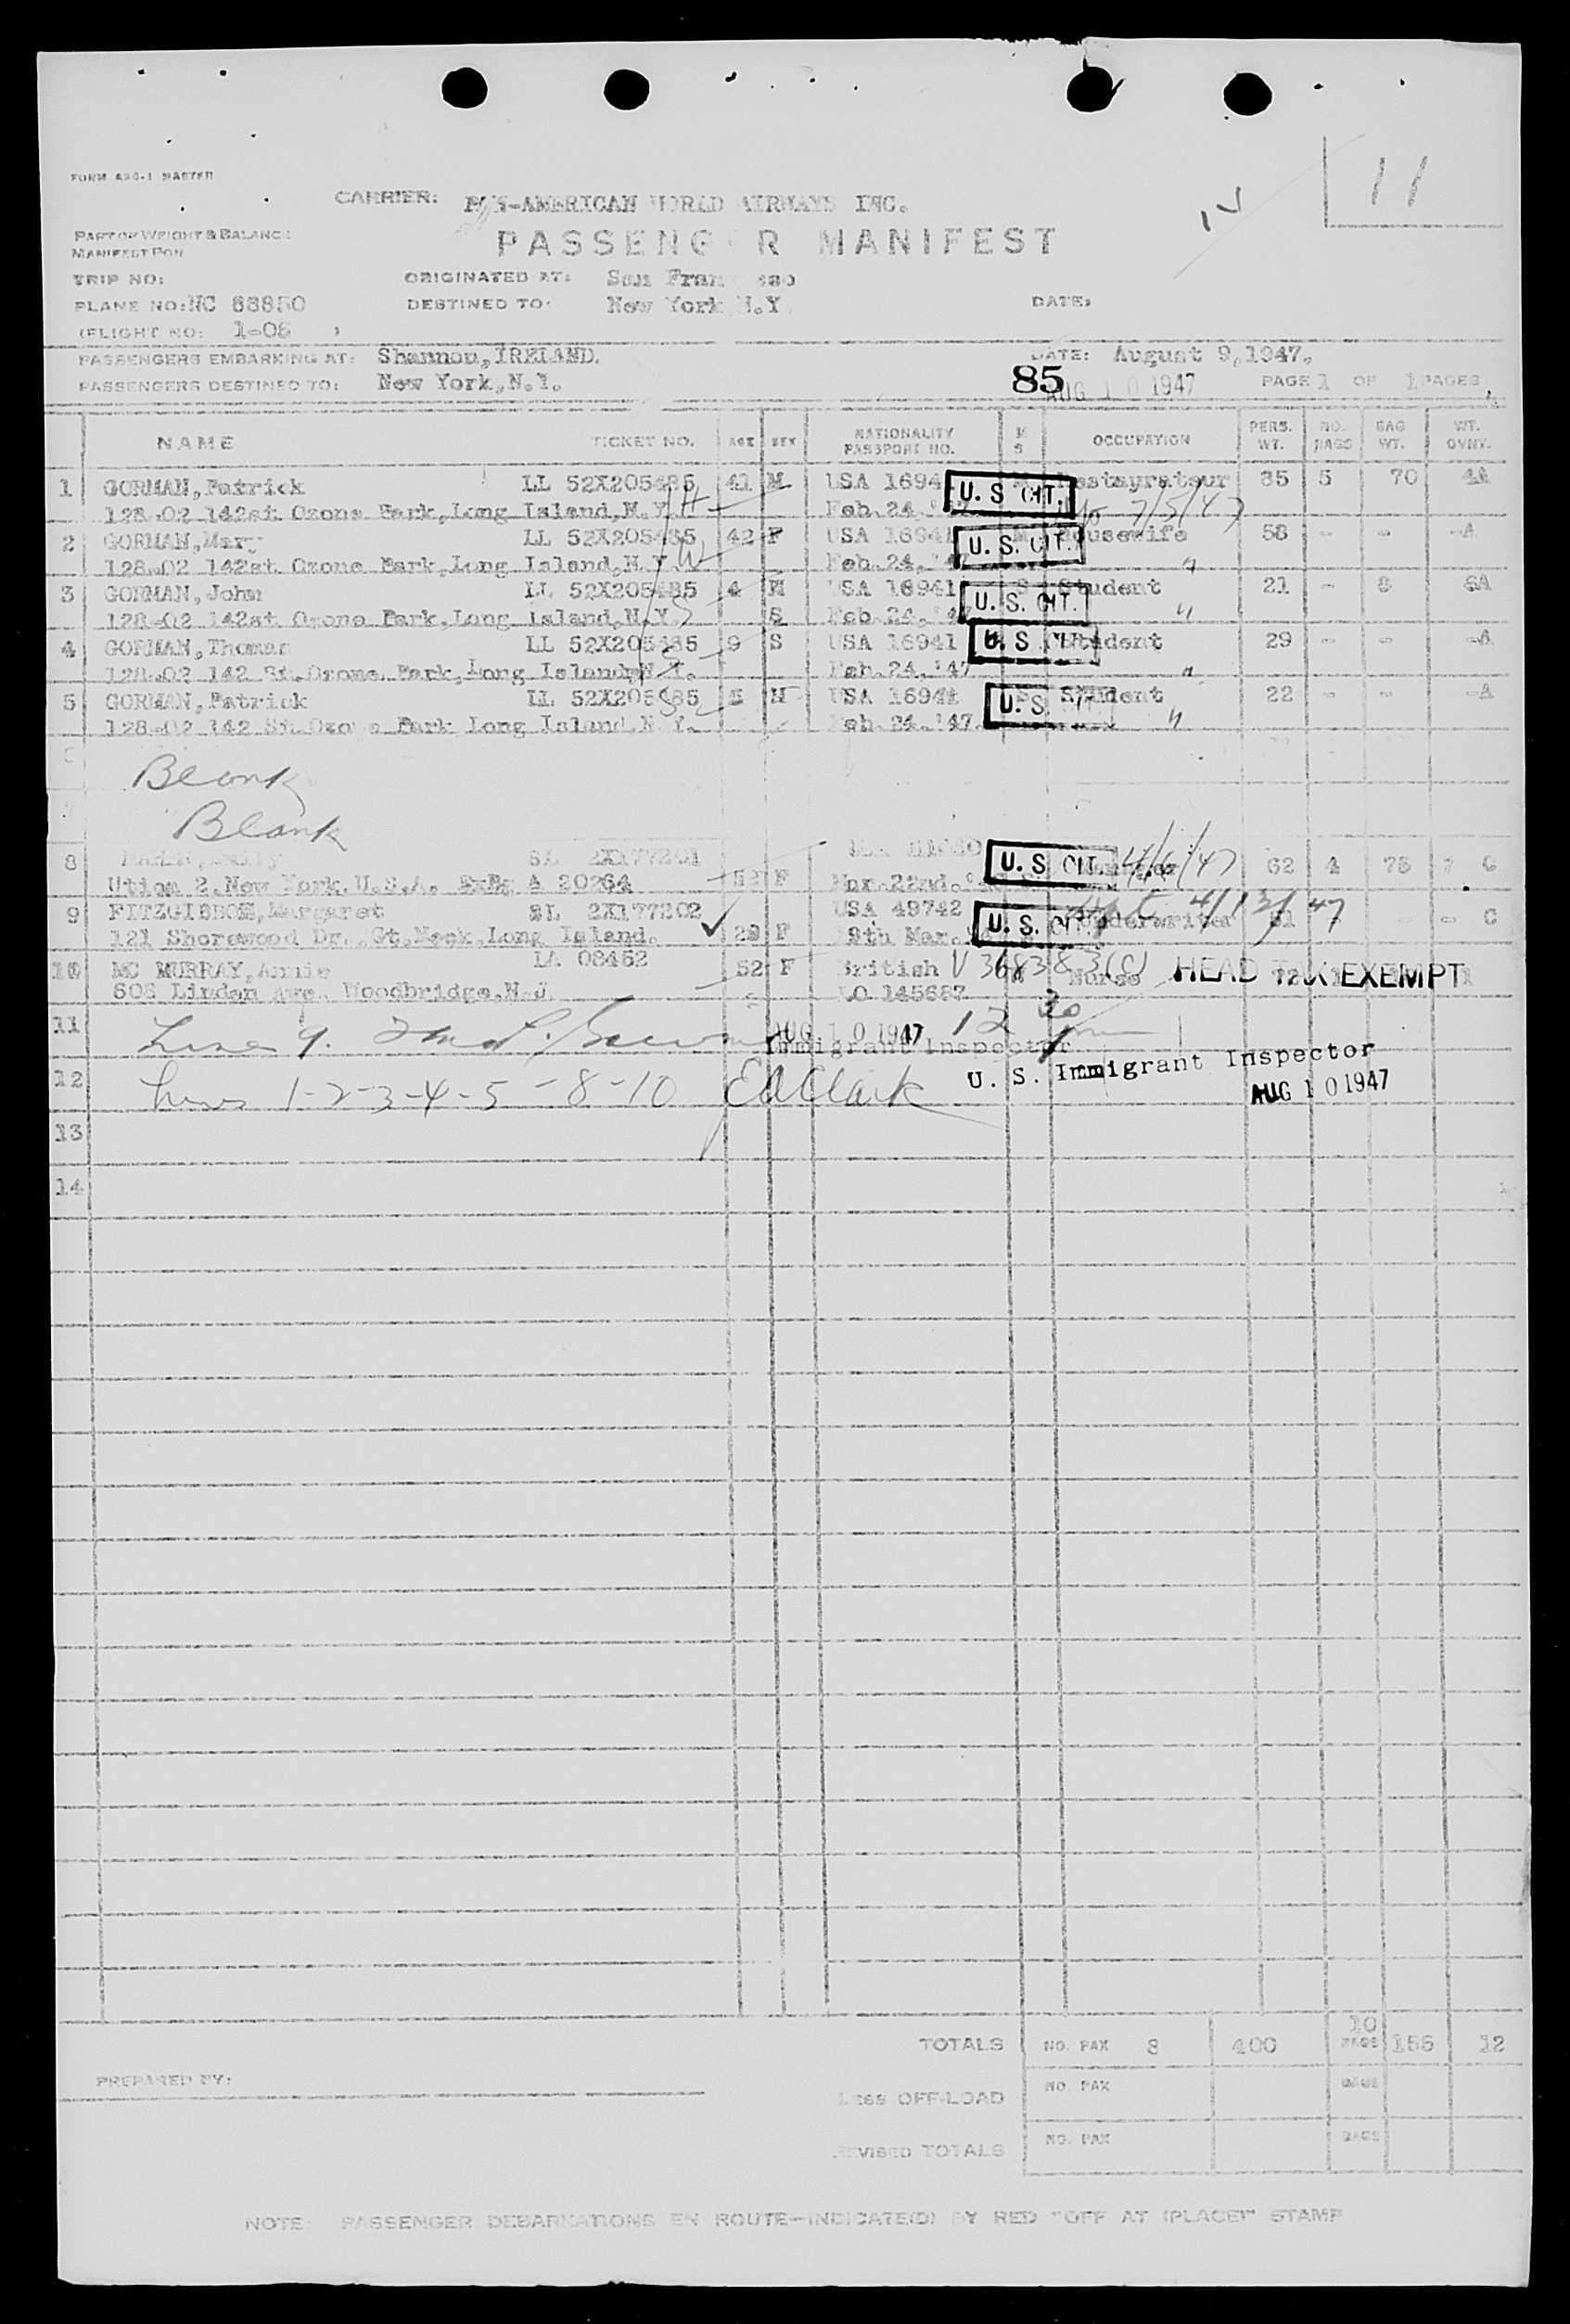 11
FORM MASTER
CARRIER: PAN-AMERICAN WORLD AIRWAYS INC.
PART OF WEIGHT & BALANCE
MANIFEST FOR
PASSENGER MANIFEST
TRIP NO: ORIGINATED AT: San Fran
PLANE NO: NC 88850 DESTINED TO: New York N.Y. DATE:
(FLIGHT NO: 1-08 )
PASSENGERS EMBARKING AT: Shannon, IRELAND. DATE: August 9, 1947.
PASSENGERS DESTINED TO: New York, N.Y. 85 AUG 10 1947 PAGE 1 OF 1 PAGES
NAME TICKET NO. AGE SEX NATIONALITY PASSPORT NO. M S OCCUPATION PERS. WT. NO. BAGS BAG WT. WT. OVNT.
1 GORMAN, Patrick LL 52X205485 41 M USA 1694 U.S. CIT. 85 5 70 4A
128-02 142st Ozone Park, Long Island, N.Y. H Feb. 24, 7/5/47
2 GORMAN, Mary LL 52X205485 42 F USA 16941 U.S. CIT. Housewife 58 - - -A
128-02 142st Ozone Park, Long Island, N.Y. W Feb. 24, '47 "
3 GORMAN, John LL 52X205485 4 M USA 16941 S U.S. CIT. Student 21 - 8 6A
128-02 142st Ozone Park, Long Island, N.Y. S Feb. 24, '47 "
4 GORMAN, Thomas LL 52X205485 9 S USA 16941 U.S. CIT. Student 29 - - -A
128-02 142 St. Ozone Park, Long Island, N.Y. Feb. 24, '47 "
5 GORMAN, Patrick LL 52X205485 5 M USA 16941 U.S. Student 22 - - -A
128-02 142 St. Ozone Park Long Island, N.Y. Feb. 24, '47. "
Blank
Blank
8 SL 2X177201 U.S. CIT. 4/6/47 62 4 78 C
Utica 2, New York, U.S.A. A 20264 52 F Mar. 22nd.
9 FITZGIBBON, Margaret SL 2X177202 USA 49742 U.S. CIT. Underwriter 4/13/47 - - C
121 Shorewood Dr., Gt. Neck, Long Island. 29 F 9th Mar.
10 MC MURRAY, Annie LA 08462 52 F British V 368383(C) Nurse HEAD TAX EXEMPT
808 Linden Ave. Woodbridge, N.J. LO 145687
11 Line 9. AUG 10 1947 12 30
Immigrant Inspector
12 Lines 1-2-3-4-5-8-10 E A Clark U. S. Immigrant Inspector
AUG 10 1947
13
14
TOTALS NO. PAX 8 400 10 BAGS 156 12
PREPARED BY:
LESS OFF-LOAD NO. PAX BAGS
REVISED TOTALS NO. PAX BAGS
NOTE: PASSENGER DEBARKATIONS EN ROUTE-INDICATE(D) BY RED "OFF AT (PLACE)" STAMP